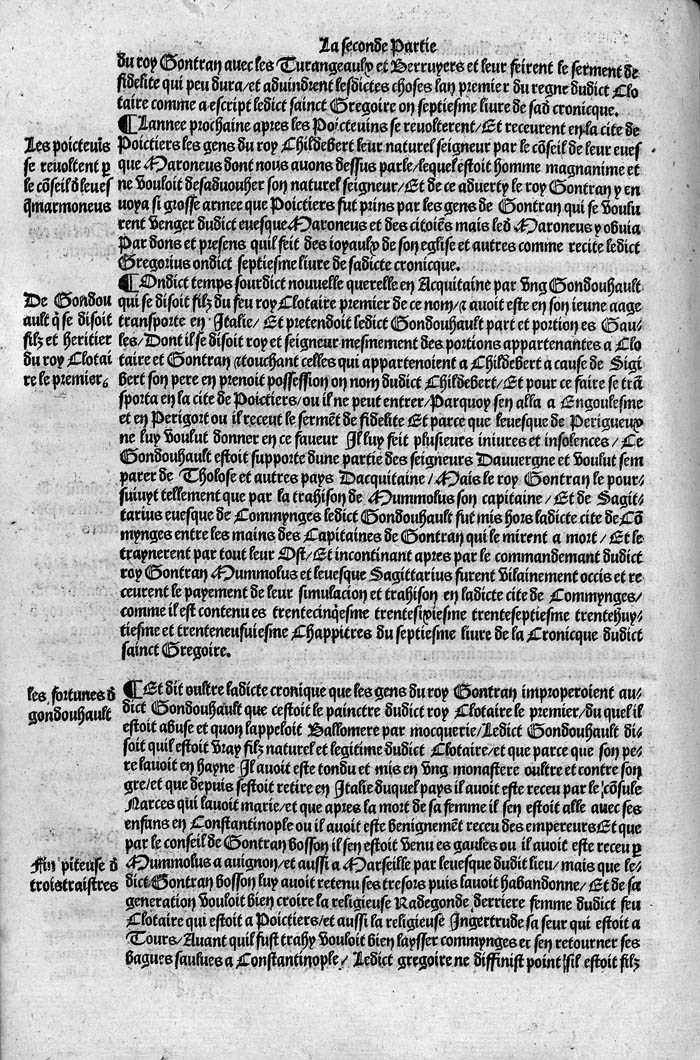 La seconde Partie
du roy Gontran avec les Turangeaulx et Berruyers et leur feirent le serment de
fidelite qui peu dura/et advindrent lesdictes choses lan premier du regne dudict Clo
taire comme a escript ledict sainct Gregoire on septiesme livre de sad cronicque.
¶Lannee prochaine apres les Poictevins se revolterent/Et receurent en la cite de
Poictiers les gens du roy Childebert leur naturel seigneur par le cõseil de leur eves
que Maroneus dont nous avons dessus parle/lequel estoit homme magnanime et
ne vouloit desadvouher son naturel seigneur/Et de ce adverty le roy Gontran y en
voya si grosse armee que Poictiers fut prins par les gens de Gontran qui se voulu
rent venger dudict evesque Maroneus et des citoiẽs mais led Maroneus y obvia
Par dons et presens quil feit des ioyaulx de son eglise et autres comme recite ledict
Gregorius ondict septiesme livre de sadicte cronicque.
Les poictevĩs
se revoltent p
le cõseil d leves
q̃ marmoneus
¶Ondict temps sourdict nouvelle querelle en Acquitaine par vng Gondouhault
qui se disoit filz du feu roy Clotaire premier de ce nom/⁊ avoit este en son ieune aage
transporte en Italie/Et pretendoit ledict Gondouhault part et portion es Gau-
les/Dont il se disoit roy et seigneur mesmement des portions appartenantes a Clo
taire et Gontran ⁊touchant celles qui appartenoient a Childebert a cause de Sigi
bert son pere en prenoit possession on nom dudict Childebert/Et pour ce faire se trã
sporta en la cite de Poictiers/ou il ne peut entrer/Parquoy sen alla a Engoulesme
et en Perigort ou il receut le sermẽt de fidelite Et parce que levesque de Perigueux
ne luy voulut donner en ce faveur Il luy feit plusieurs iniures et insolences/Ce
Gondouhault estoit supporte dune partie des seigneurs Dauvergne et voulut sem
parer de Tholose et autres pays Dacquitaine/Mais le roy Gontran le pour-
suivyt tellement que par la trahison de Mummolus son capitaine/Et de Sagit-
tarius evesque de Commynges ledict Gondouhault fut mis hors ladicte cite de Cõ
mynges entre les mains des Capitaines de Gontran qui le mirent a mort/Et le
traynerent par tout leur Ost/Et incontinant apres par le commandemant dudict
roy Gontran Mummolus et levesque Sagittarius furent vilainement occis et re
ceurent le payement de leur simulacion et trahison en ladicte cite de Commynges/
comme il est contenu es trentecinq̃esme trentesixiesme trenteseptiesme trentehuy-
tiesme et trenteneufuiesme Chappitres du septiesme livre de la Cronicque dudict
sainct Gregoire.
De Gondou
ault q̃ se disoit
filz et heritier
du roy Clotai
re le premier.
¶Et dit oultre ladicte cronique que les gens du roy Gontran improperoient au-
dict Gondouhault que cestoit le painctre dudict roy Clotaire le premier/du quel il
estoit abuse et quon lappeloit Ballomere par mocquerie/Ledict Gondouhault di-
soit quil estoit vray filz naturel et legitime dudict Clotaire/et que parce que son pe-
re lavoit en hayne Il avoit este tondu et mis en vng monastere oultre et contre son
gre/et que depuis sestoit retire en Italie duquel pays il avoit este receu par le cõsule
Narces qui lavoit marie/et que apres la mort de sa femme il sen estoit alle avec ses
enfans en Constantinople ou il avoit este benignemẽt receu des empereurs Et que
par le conseil de Gontran bosson il sen estoit venu es gaules ou il avoit este receu p
Mummolus a avignon/et aussi a Marseille par levesque dudit lieu/mais que le-
dict Gontran bosson luy avoit retenu ses tresors puis lavoit habandonne/Et de sa
generation vouloit bien croire la religieuse Radegonde derriere femme dudict feu
Clotaire qui estoit a Poictiers/et aussi la religieuse Ingertrude sa seur qui estoit a
Tours/Avant quil fust trahy vouloit bien laysser commynges et sen retourner ses
bagues saulves a Constantinople/Ledict gregoire ne diffinist point sil estoit filz
les fortunes d
gondouhault
Fin piteuse d
troistraistres